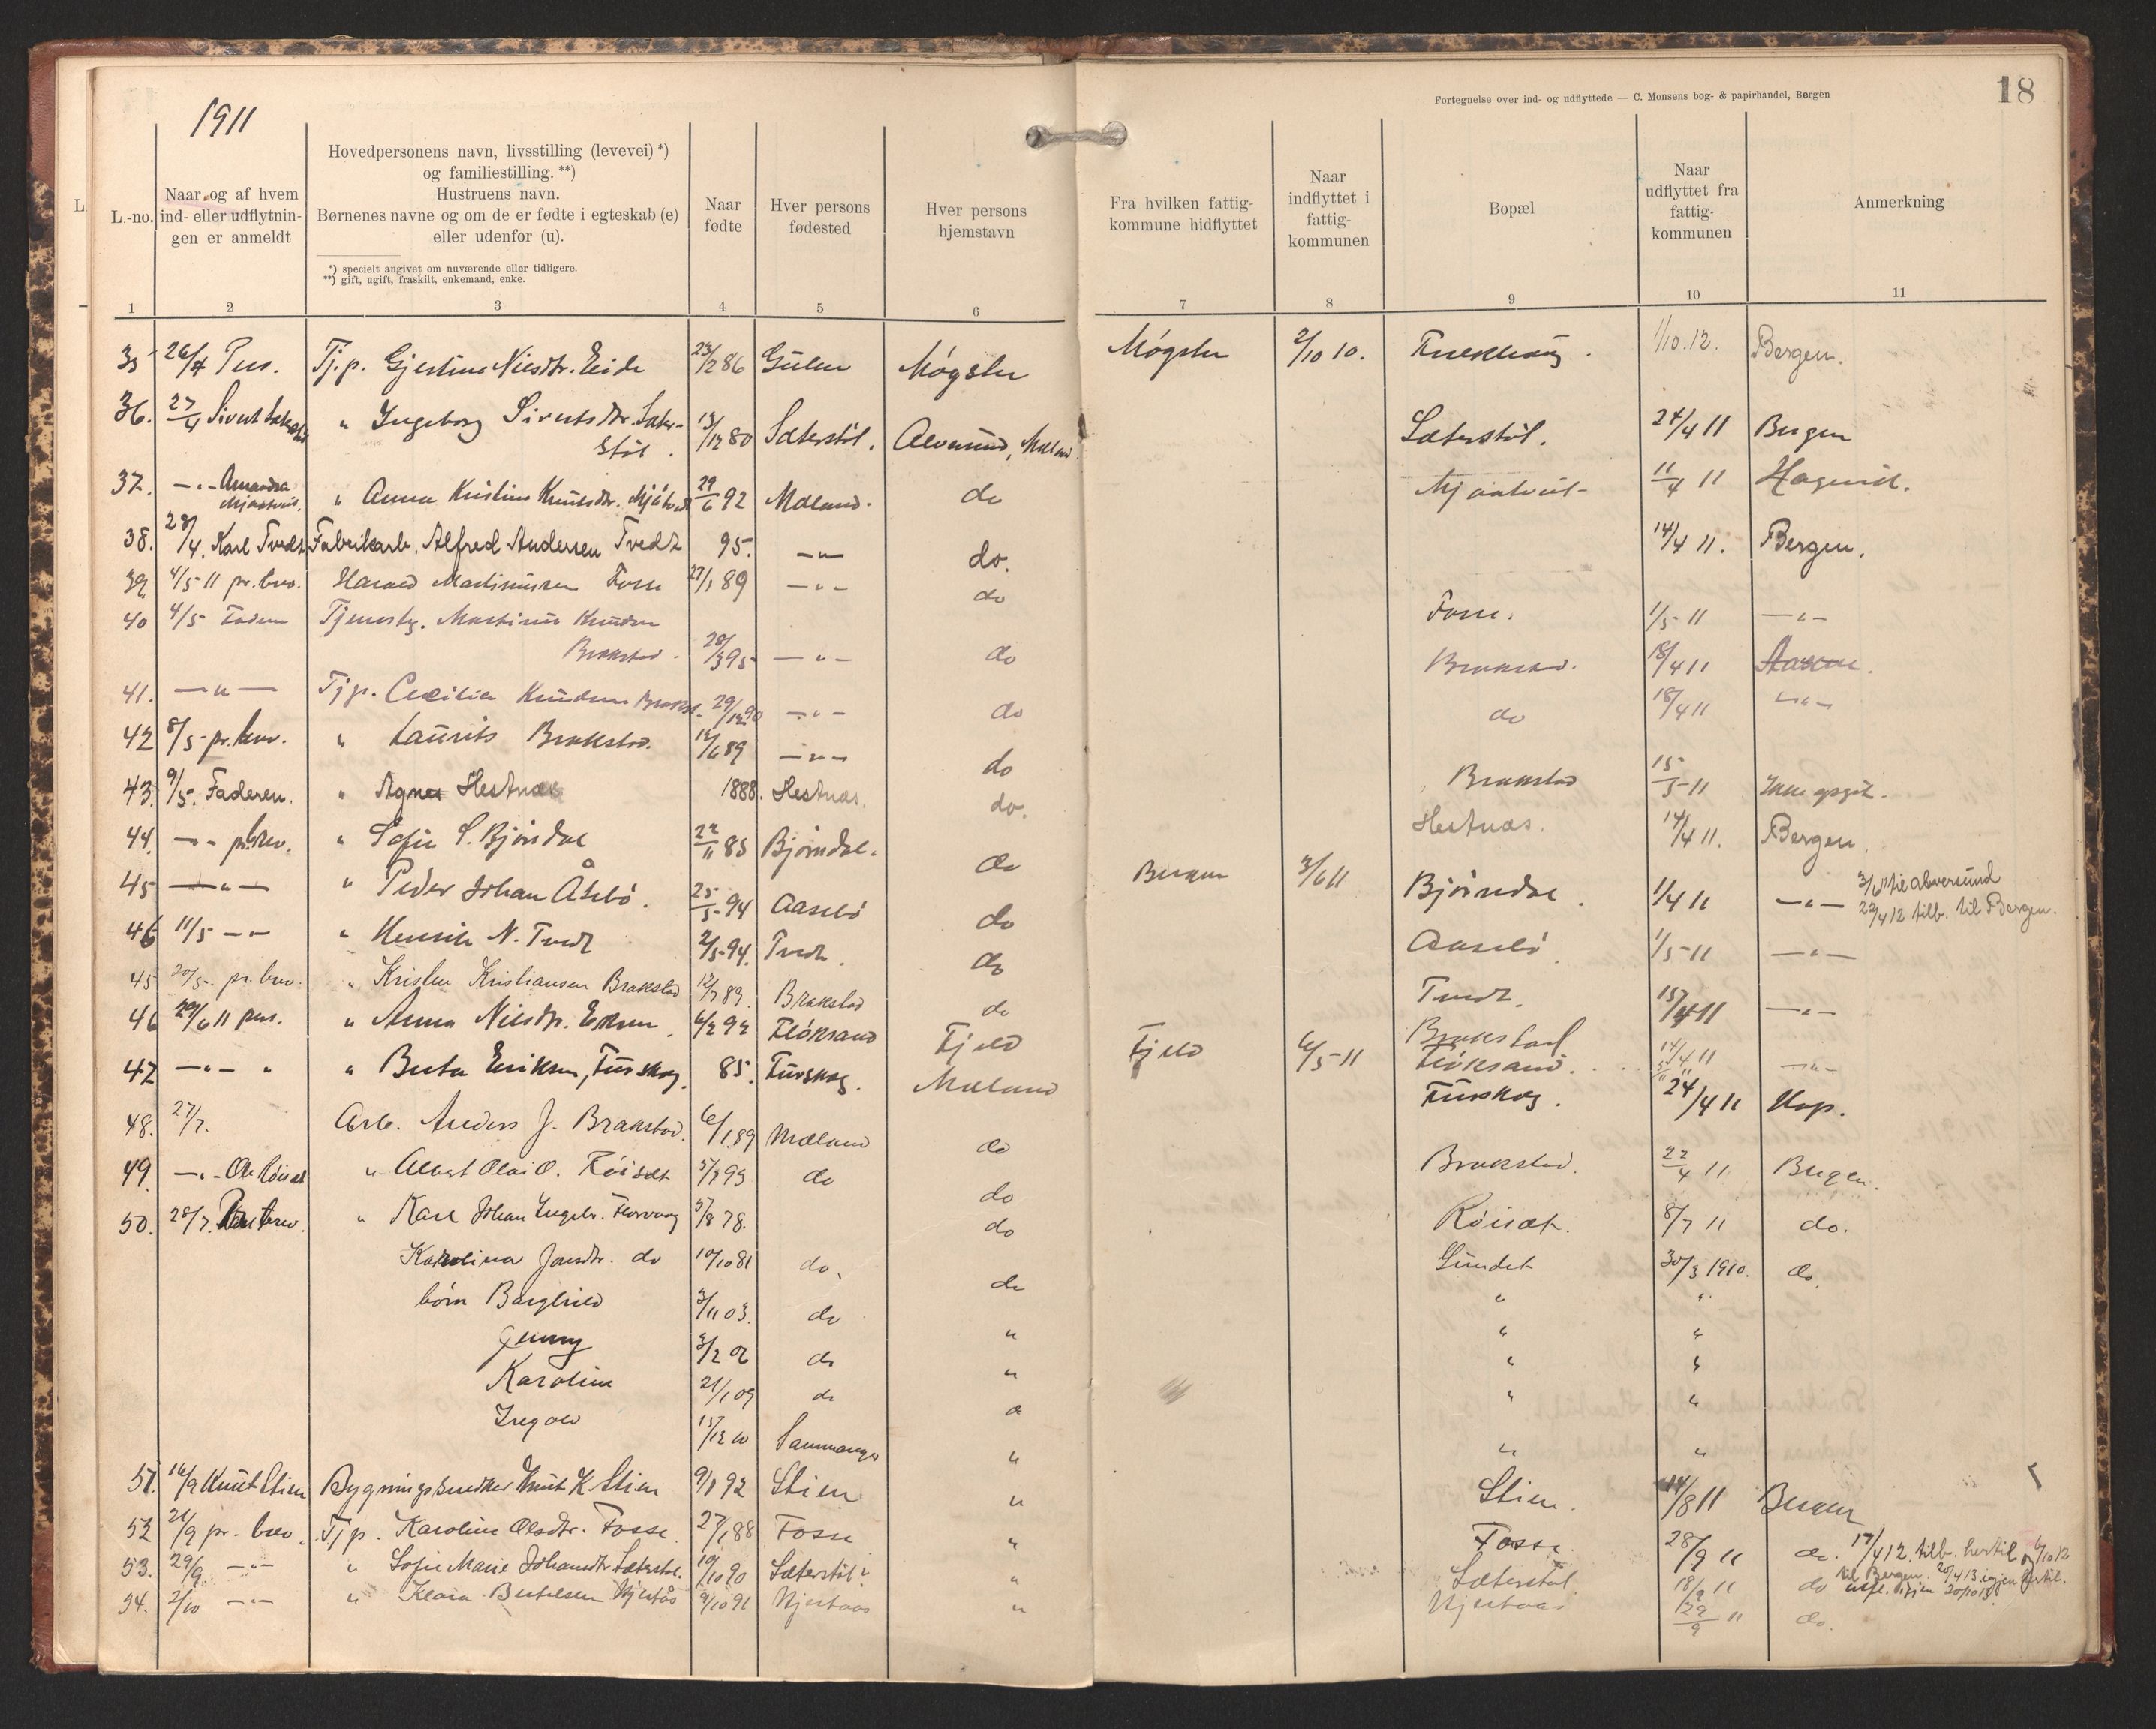 1911
Fortegnelse over ind- og udflyttede — C. Monsens bog- & papirhandel, Bergen
18
L.-no.
Naar og af hvem
ind- eller udflytnin-
gen er anmeldt
Hovedpersonens navn, livsstilling (levevei) *)
og familiestilling. **)
Hustruens navn.
Børnenes navne og om de er fødte i egteskab (e)
eller udenfor (u).
*) specielt angivet om nuværende eller tidligere.
**) gift, ugift, fraskilt, enkemand, enke.
Naar
fødte
Hver persons
fødested
Hver persons
hjemstavn
Fra hvilken fattig-
kommune hidflyttet
Naar
indflyttet i
fattig-
kommunen
Bopæl
Naar
udflyttet fra
fattig-
kommunen
Anmerkning
1 2 3 4 5 6 7 8 9 10 11
35 26/4 Pers. Tj.p. Gjertine Nilsdtr. Eide 23/2 86 Gulen Møgster Møgster 2/10 10. 1/10.12. Bergen.
36. 27/4 Sivert " Ingeborg Sivertsdtr. Sæter-
støl. 13/12 80 Sæterstøl. Alversund, Mæland Sæterstøl. 24/4 11 Bergen
37. —"— Amanda
Mjaatveit. " Anna Kristine Knutsdtr. Mjåtveit 29/6 92 Mæland. do Mjaatveit 11/4 11 Hagevik.
38. 28/4. Karl Tvedt Fabrikarb. Alfred Andersen Tvedt 95. —"— do. 14/4 11. Bergen.
39 4/5 11 pr. brev. Harald Martinussen Fosse 27/1 89 —"— do Fosse. 1/5 11 —"—
40 4/5 Faderen Tjenestg. Martinus Knudsen
Brakstad. 28/3 95 —"— do Brakstad. 18/4 11
41. —"— Tjp. Cecilia Knudsen Brakst. 29/12 90 —"— do do 18/4 11 —"—
42 8/5 pr. brev. " Laurits Brakstad. 12/6 89 —"— do Brakstad 15/5 11 Ikke opgit.
43. 9/5. Faderen. " Agnes Hestnæs 1888. Hestnæs. do. Hestnæs. 14/4 11. Bergen.
44. —"— pr. brev. " Sofie S. Bjørndal 22/11 85 Bjørndal. do Bergen 3/6 11 Bjørndal. 1/4 11 —"— 3/6 11 til Alversund
22/4 12 tilb. til Bergen.
45 —"— " Peder Johan Åsebø. 25/5 94 Aasebø do Aasebø 1/5 11 —"—
46 11/5 —"— " Henrik N. Tvedt 2/5 94. Tvedt. do Tvedt. 15/4 11 —"—
45 20/5. pr. brev. " Kristen Kristiansen Brakstad 12/7 89. Brakstad do Brakstad 14/4 11 —"—
46 29/6 11 pers. " Anna Nilsdtr. 4/2 92 Fløksand Fjeld Fjeld 6/5 11 Fløksand.
47 —"— " " Berta Eriksen, Furskog. 85. Furskog. Mæland Furskog. 24/4 11 Hop.
48. 27/7. Arb. Anders J. Brakstad. 6/1.89 Mæland do Brakstad. 22/4 11 Bergen.
49. —"— Ole Røiset " Albert Olai O. Røiset 5/7 93 do do Røiset. 8/7 11 do.
50. 28/7. brev. " Karl Johan Ingebr. Florvaag 5/8 78. do Sundet 30/3 1910. do.
Karolina Jonsdtr. do 10/10 81 do. do " "
børn Borghild 3/11 03. do " " "
Jenny 3/2 06 do " " "
Karoline 21/1 09 do " " "
Ingold 15/12 10 Samnanger " " "
51. 16/9 Knut Stien Bygningssnedker Knut K. Stien 9/8 92 Stien " Stien. 14/8 11 Bergen
52 21/9 pr. brev. Tjp. Karoline Olsdtr. Fosse. 27/1 88 Fosse " Fosse. 28/9 11 do. 17/4 12. tilb. hertil og 6/10 12
til Bergen. 20/4 13 igjen hertil.
utfl. igjen 20/10 13.
53. 29/9 —"— " Sofie Marie Johannesdtr. Sæterstøl. 10/10 90 Sæterstøl " Sæterstøl. 18/9 11 do
54. 2/10 —"— " Klara Bertelsen Hjertås 9/10 91 Hjertaas " Hjertaas 29/9 11 do.